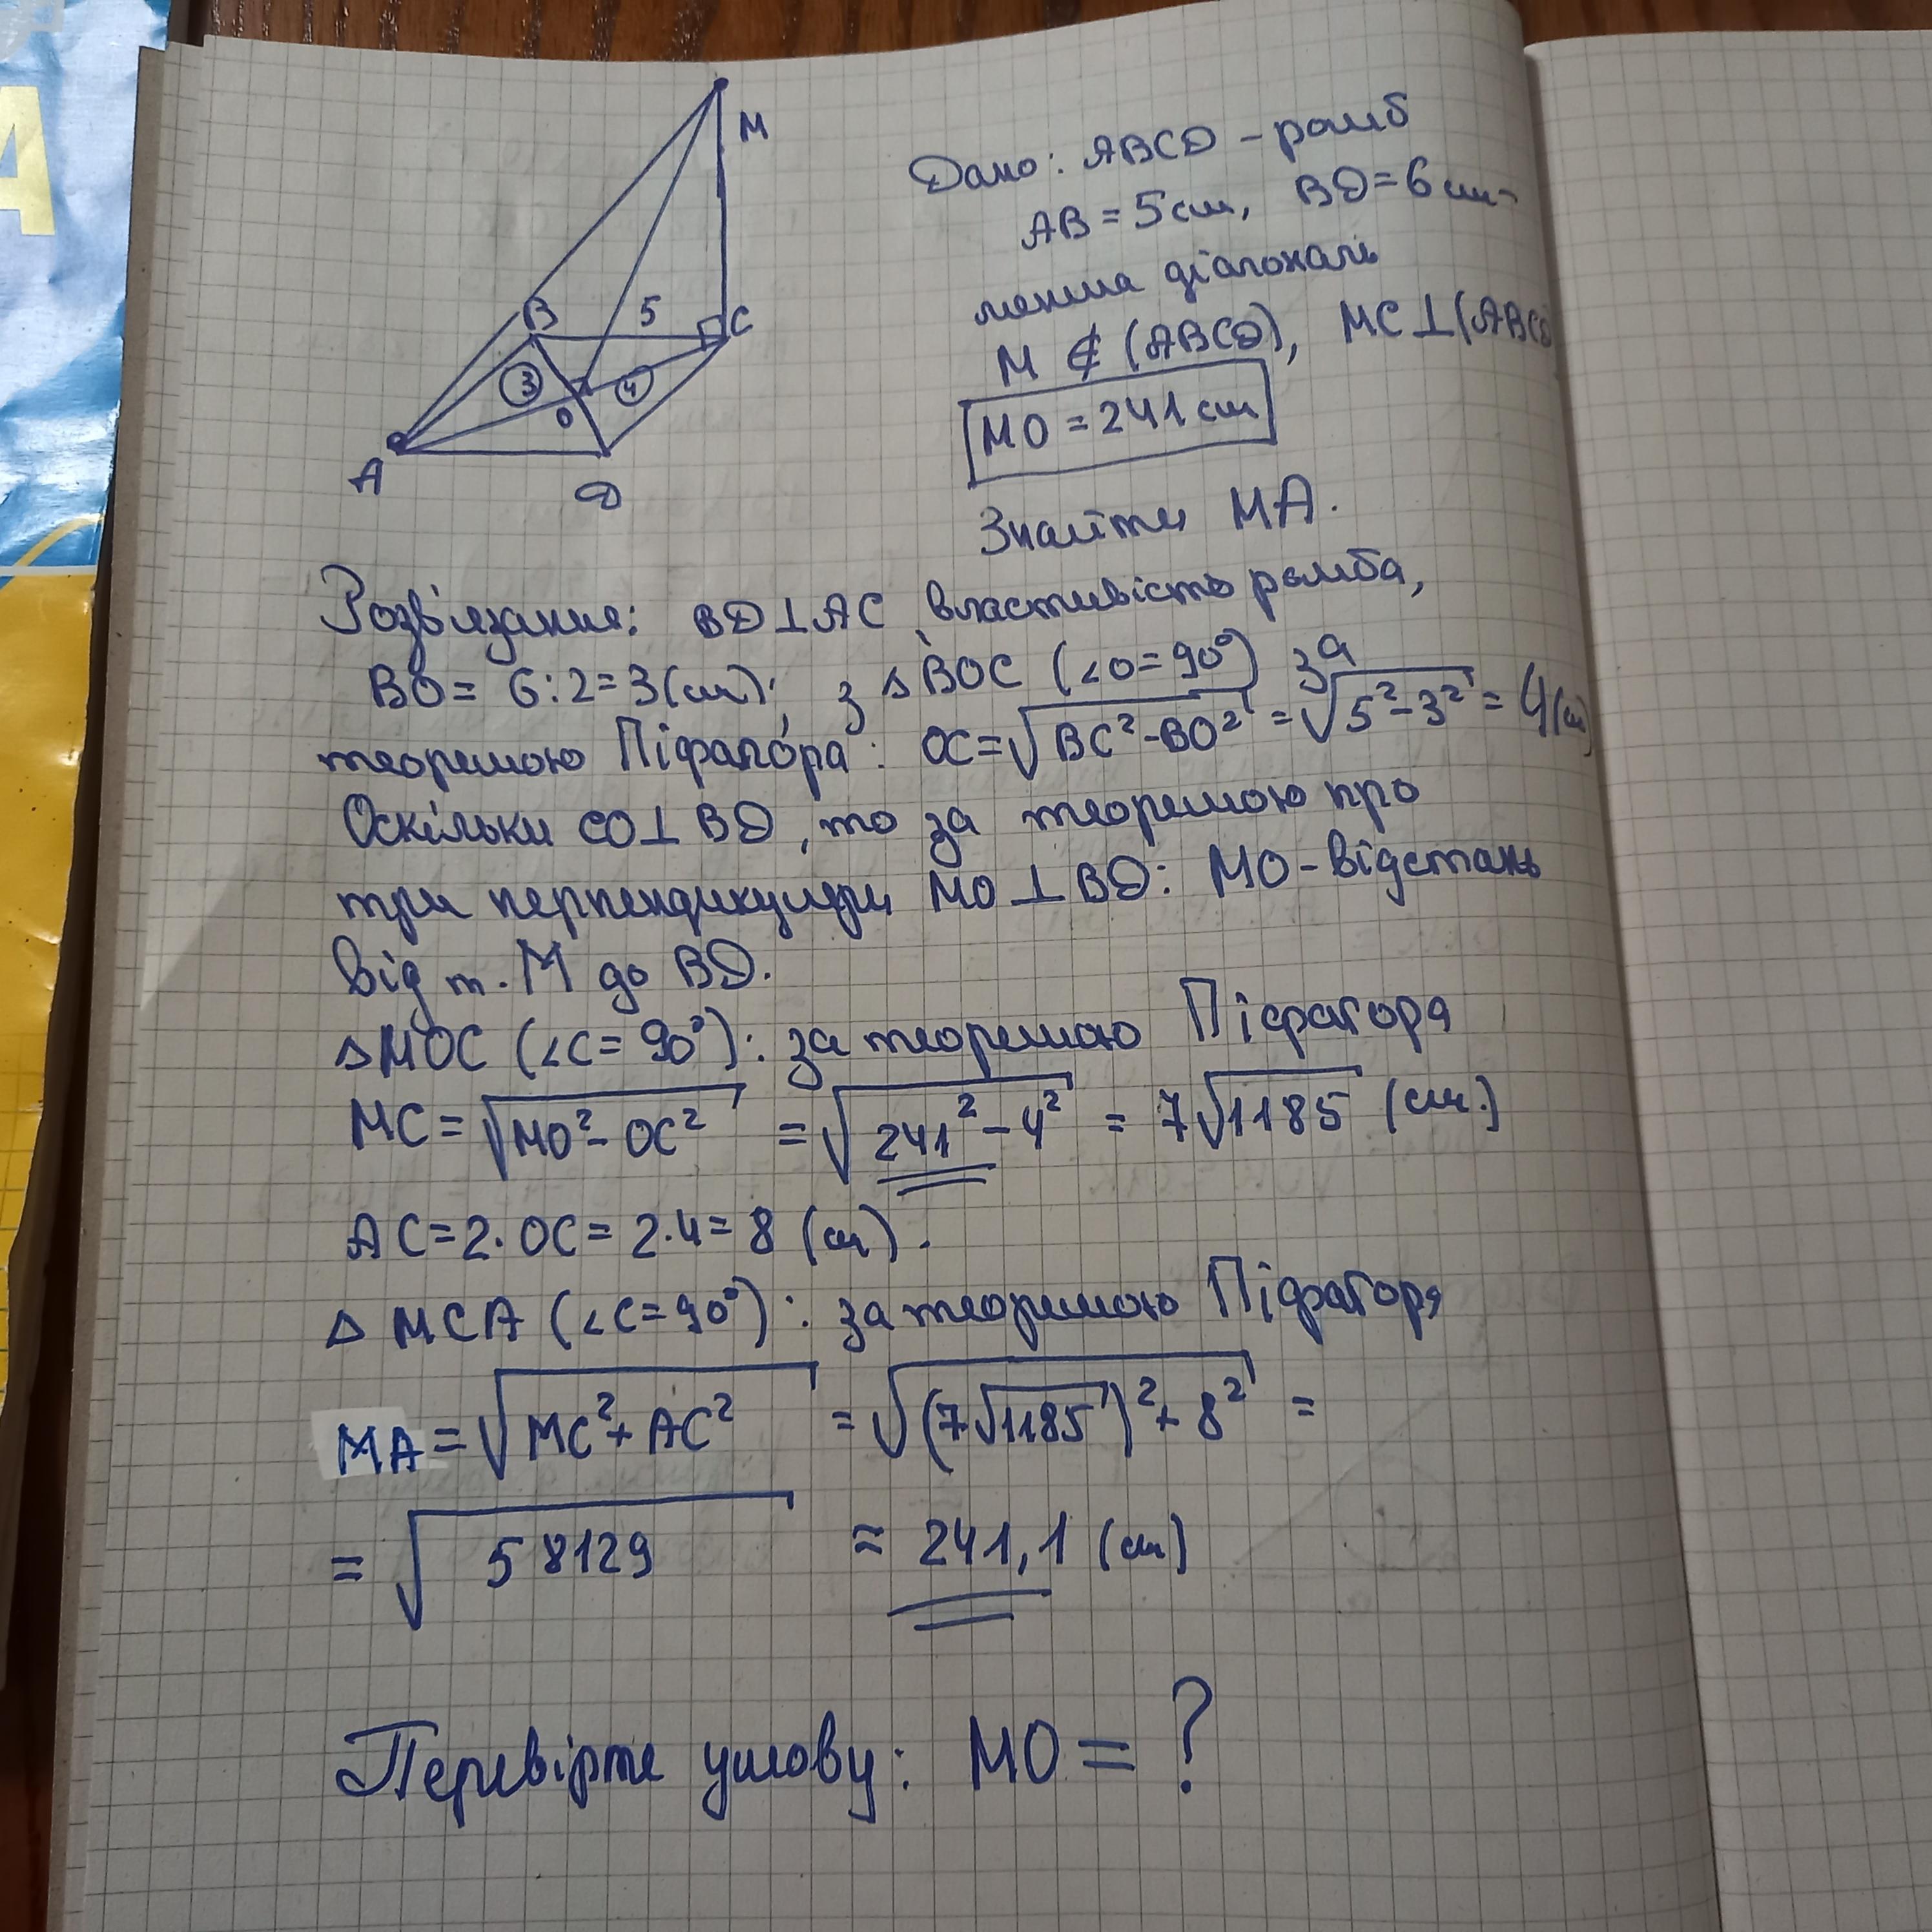 А
M
B
5
C
3
4
O
A
D
Дано: ABCD - ромб
AB = 5 см, BD = 6 см -
менша діагональ
M ∉ (ABCD), MC ⊥ (ABCD
MO = 241 см
Знайти MA.
Розв'язання: BD ⊥ AC, властивість ромба,
BO = 6 : 2 = 3 (см); з △ BOC (∠O = 90°) за
теоремою Піфагора: OC = √(BC² - BO²) = √(5² - 3²) = 4 (см)
Оскільки CO ⊥ BD, то за теоремою про
три перпендикуляри MO ⊥ BD: MO - відстань
від т. M до BD.
△ MOC (∠C = 90°): за теоремою Піфагора
MC = √(MO² - OC²) = √(241² - 4²) = 7√1185 (см.)
AC = 2 · OC = 2 · 4 = 8 (см).
△ MCA (∠C = 90°): за теоремою Піфагора
MA = √(MC² + AC²) = √((7√1185)² + 8²) =
= √58129 ≈ 241,1 (см)
Перевірте умову: MO = ?